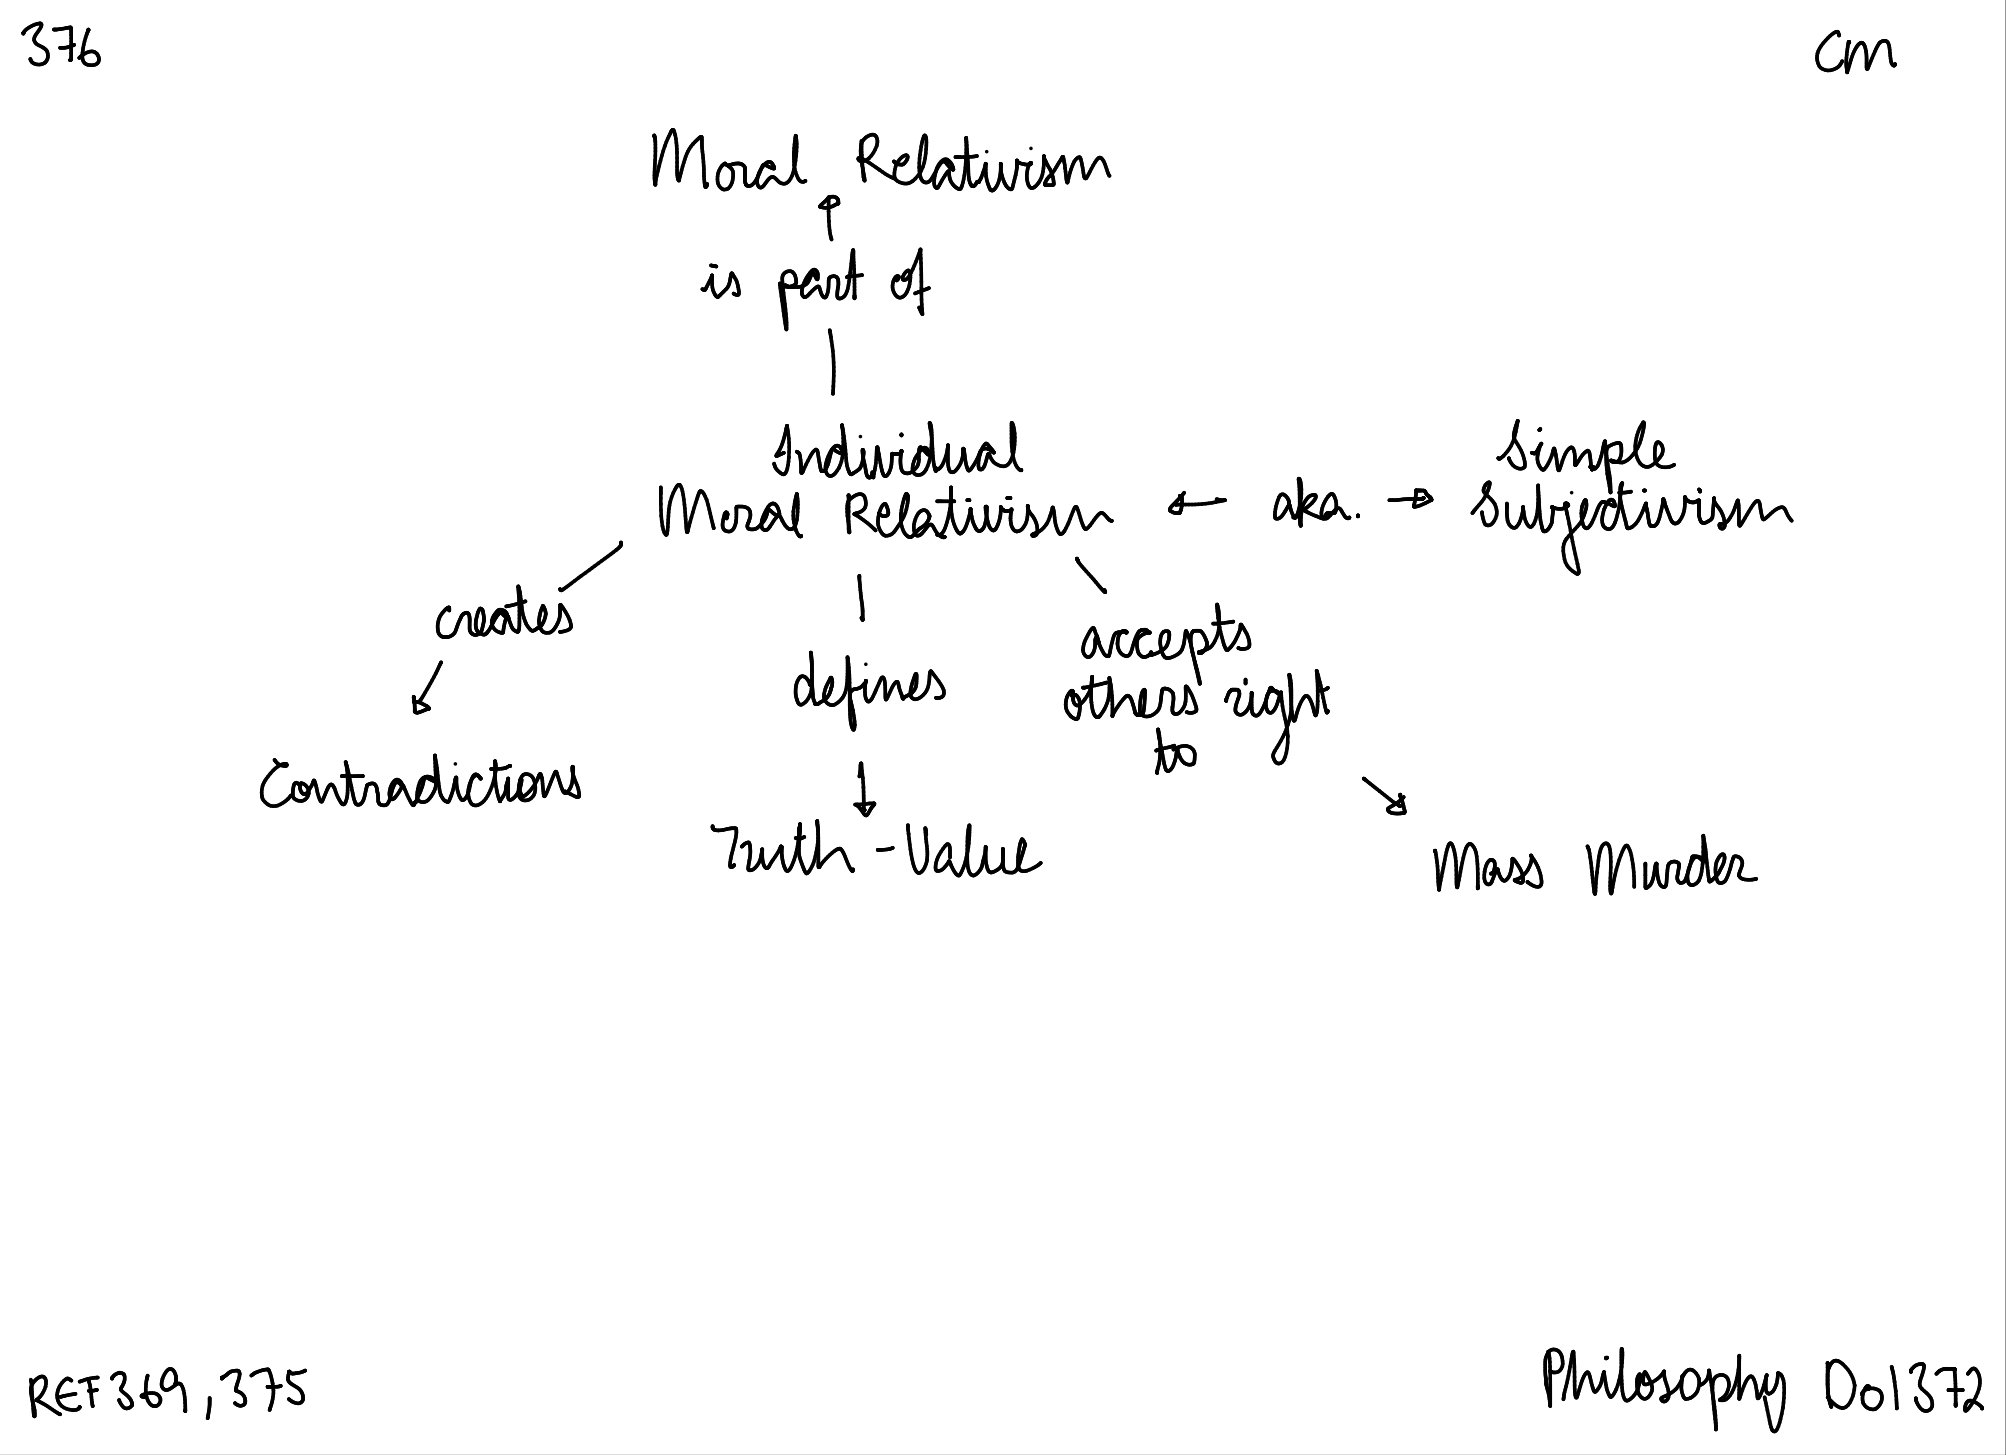 376
Cm
Moral Relativism
is part of
Individual
Moral Relativism
aka.
Simple
Subjectivism
creates
Contradictions
defines
Truth-Value
accepts
others right
to
Mass Murder
REF369,375
Philosophy D01372